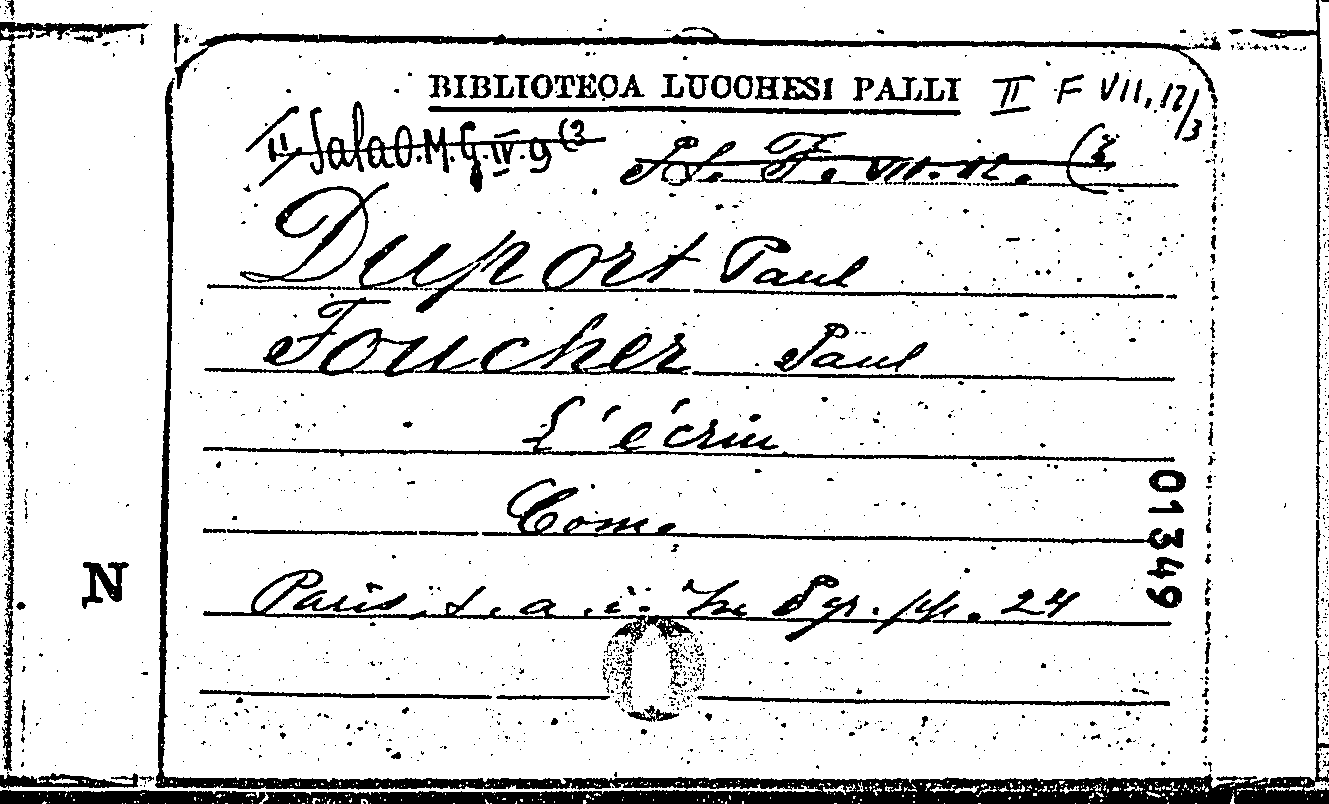 BIBLIOTECA LUCCHESI PALLI II F VII, 12/3
II Sala O.M.G.IV.9 (3
F. VII. 12. (3
Duport Paul
Foucher Paul
L'écrin
Com.
Paris, s. a. i. In 8 gr. pp. 24
01349
N